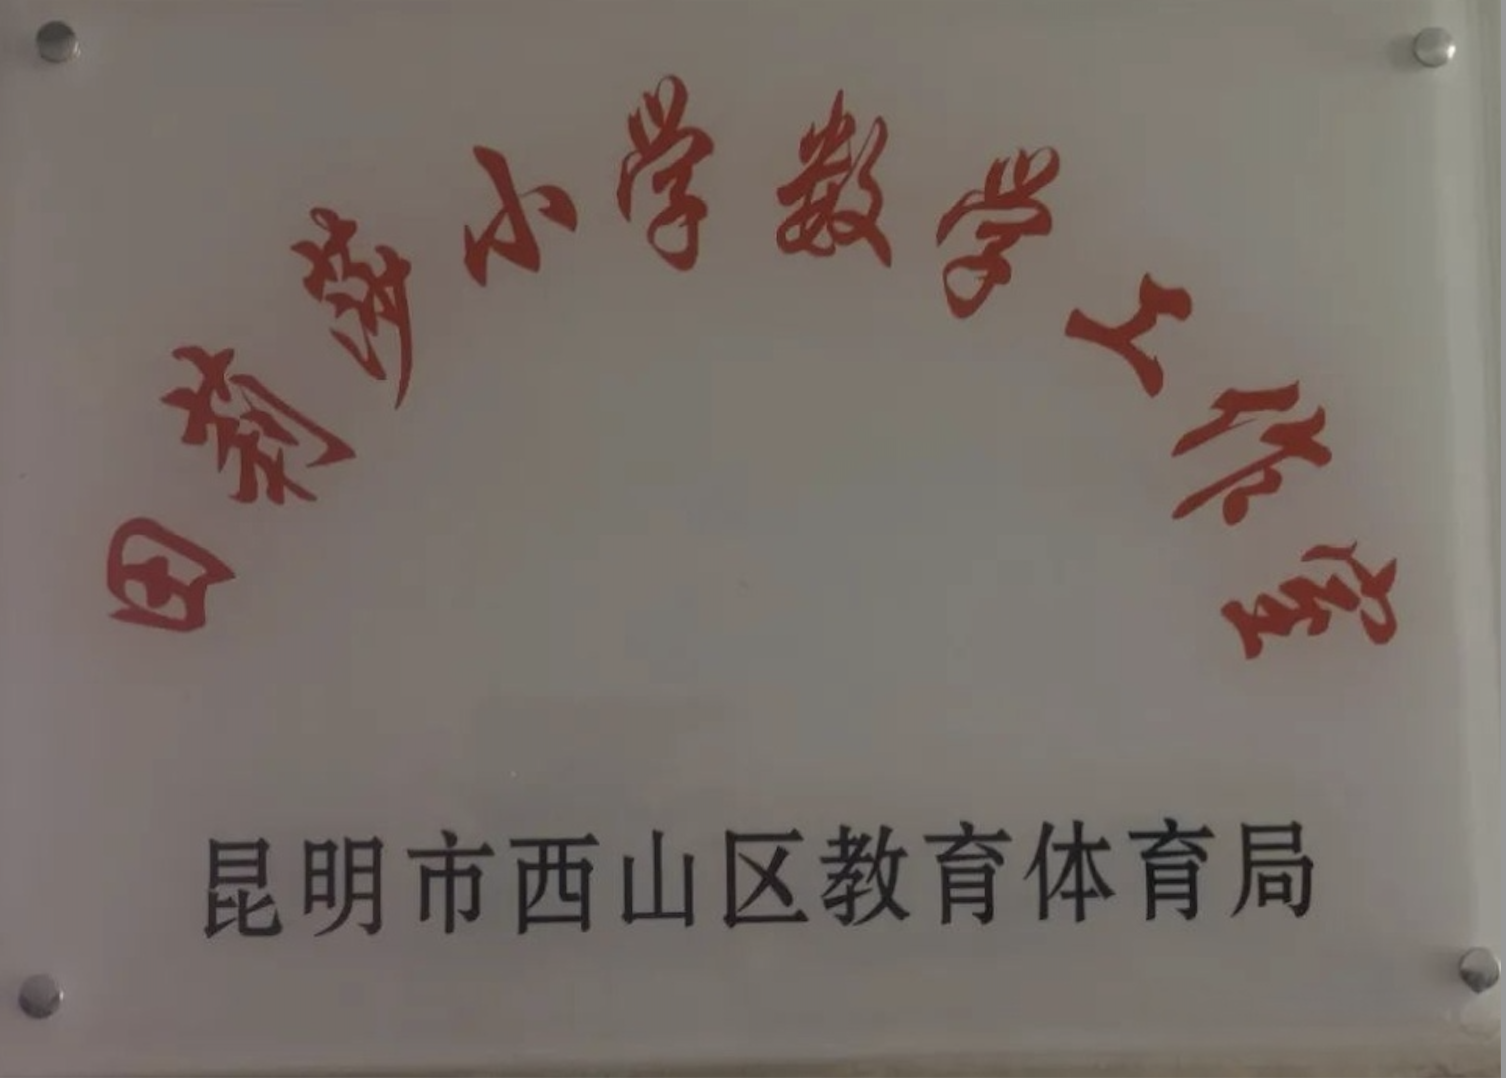 田莉莎小学数学工作室
昆明市西山区教育体育局